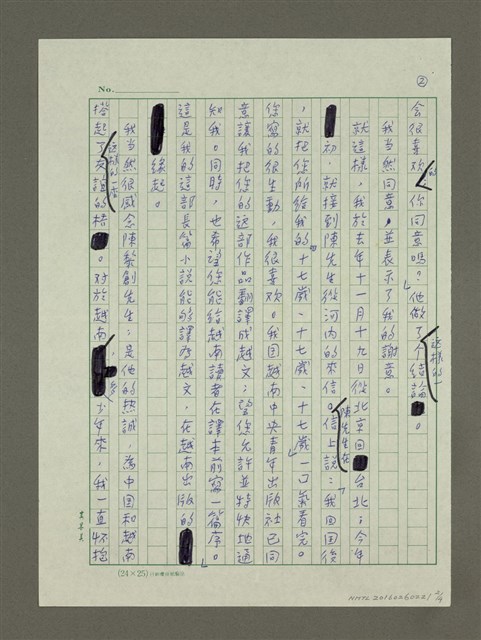 No.
②
會很喜欢的。你同意嗎？」他做了這樣的一个結論。
我当然同意，並表示了我的謝意。
就這樣，我於去年十一月十九日從北京回台北；今年
初，就接到陳先生從河內的來信。陳先生在信上說：「我回國後
，就把你所給我的『十七歲、十七歲、十七歲』一口氣看完。
你寫的很生動，我很喜欢。我国越南中央青年出版社已同
意讓我把你的這部作品翻譯成越文；望您允許並特快地通
知我。同時，也希望你能給越南讀者在譯本前寫一篇序。」
這是我的這部長篇小說能夠譯为越文，在越南出版的
緣起。
我当然很感念陳黎創先生；是他的热誠，為中国和越南
搭起了這樣的一座友誼的橋。对於越南，多少年來，我一直怀抱
(24×25)
NMTL 20160260221 2/9